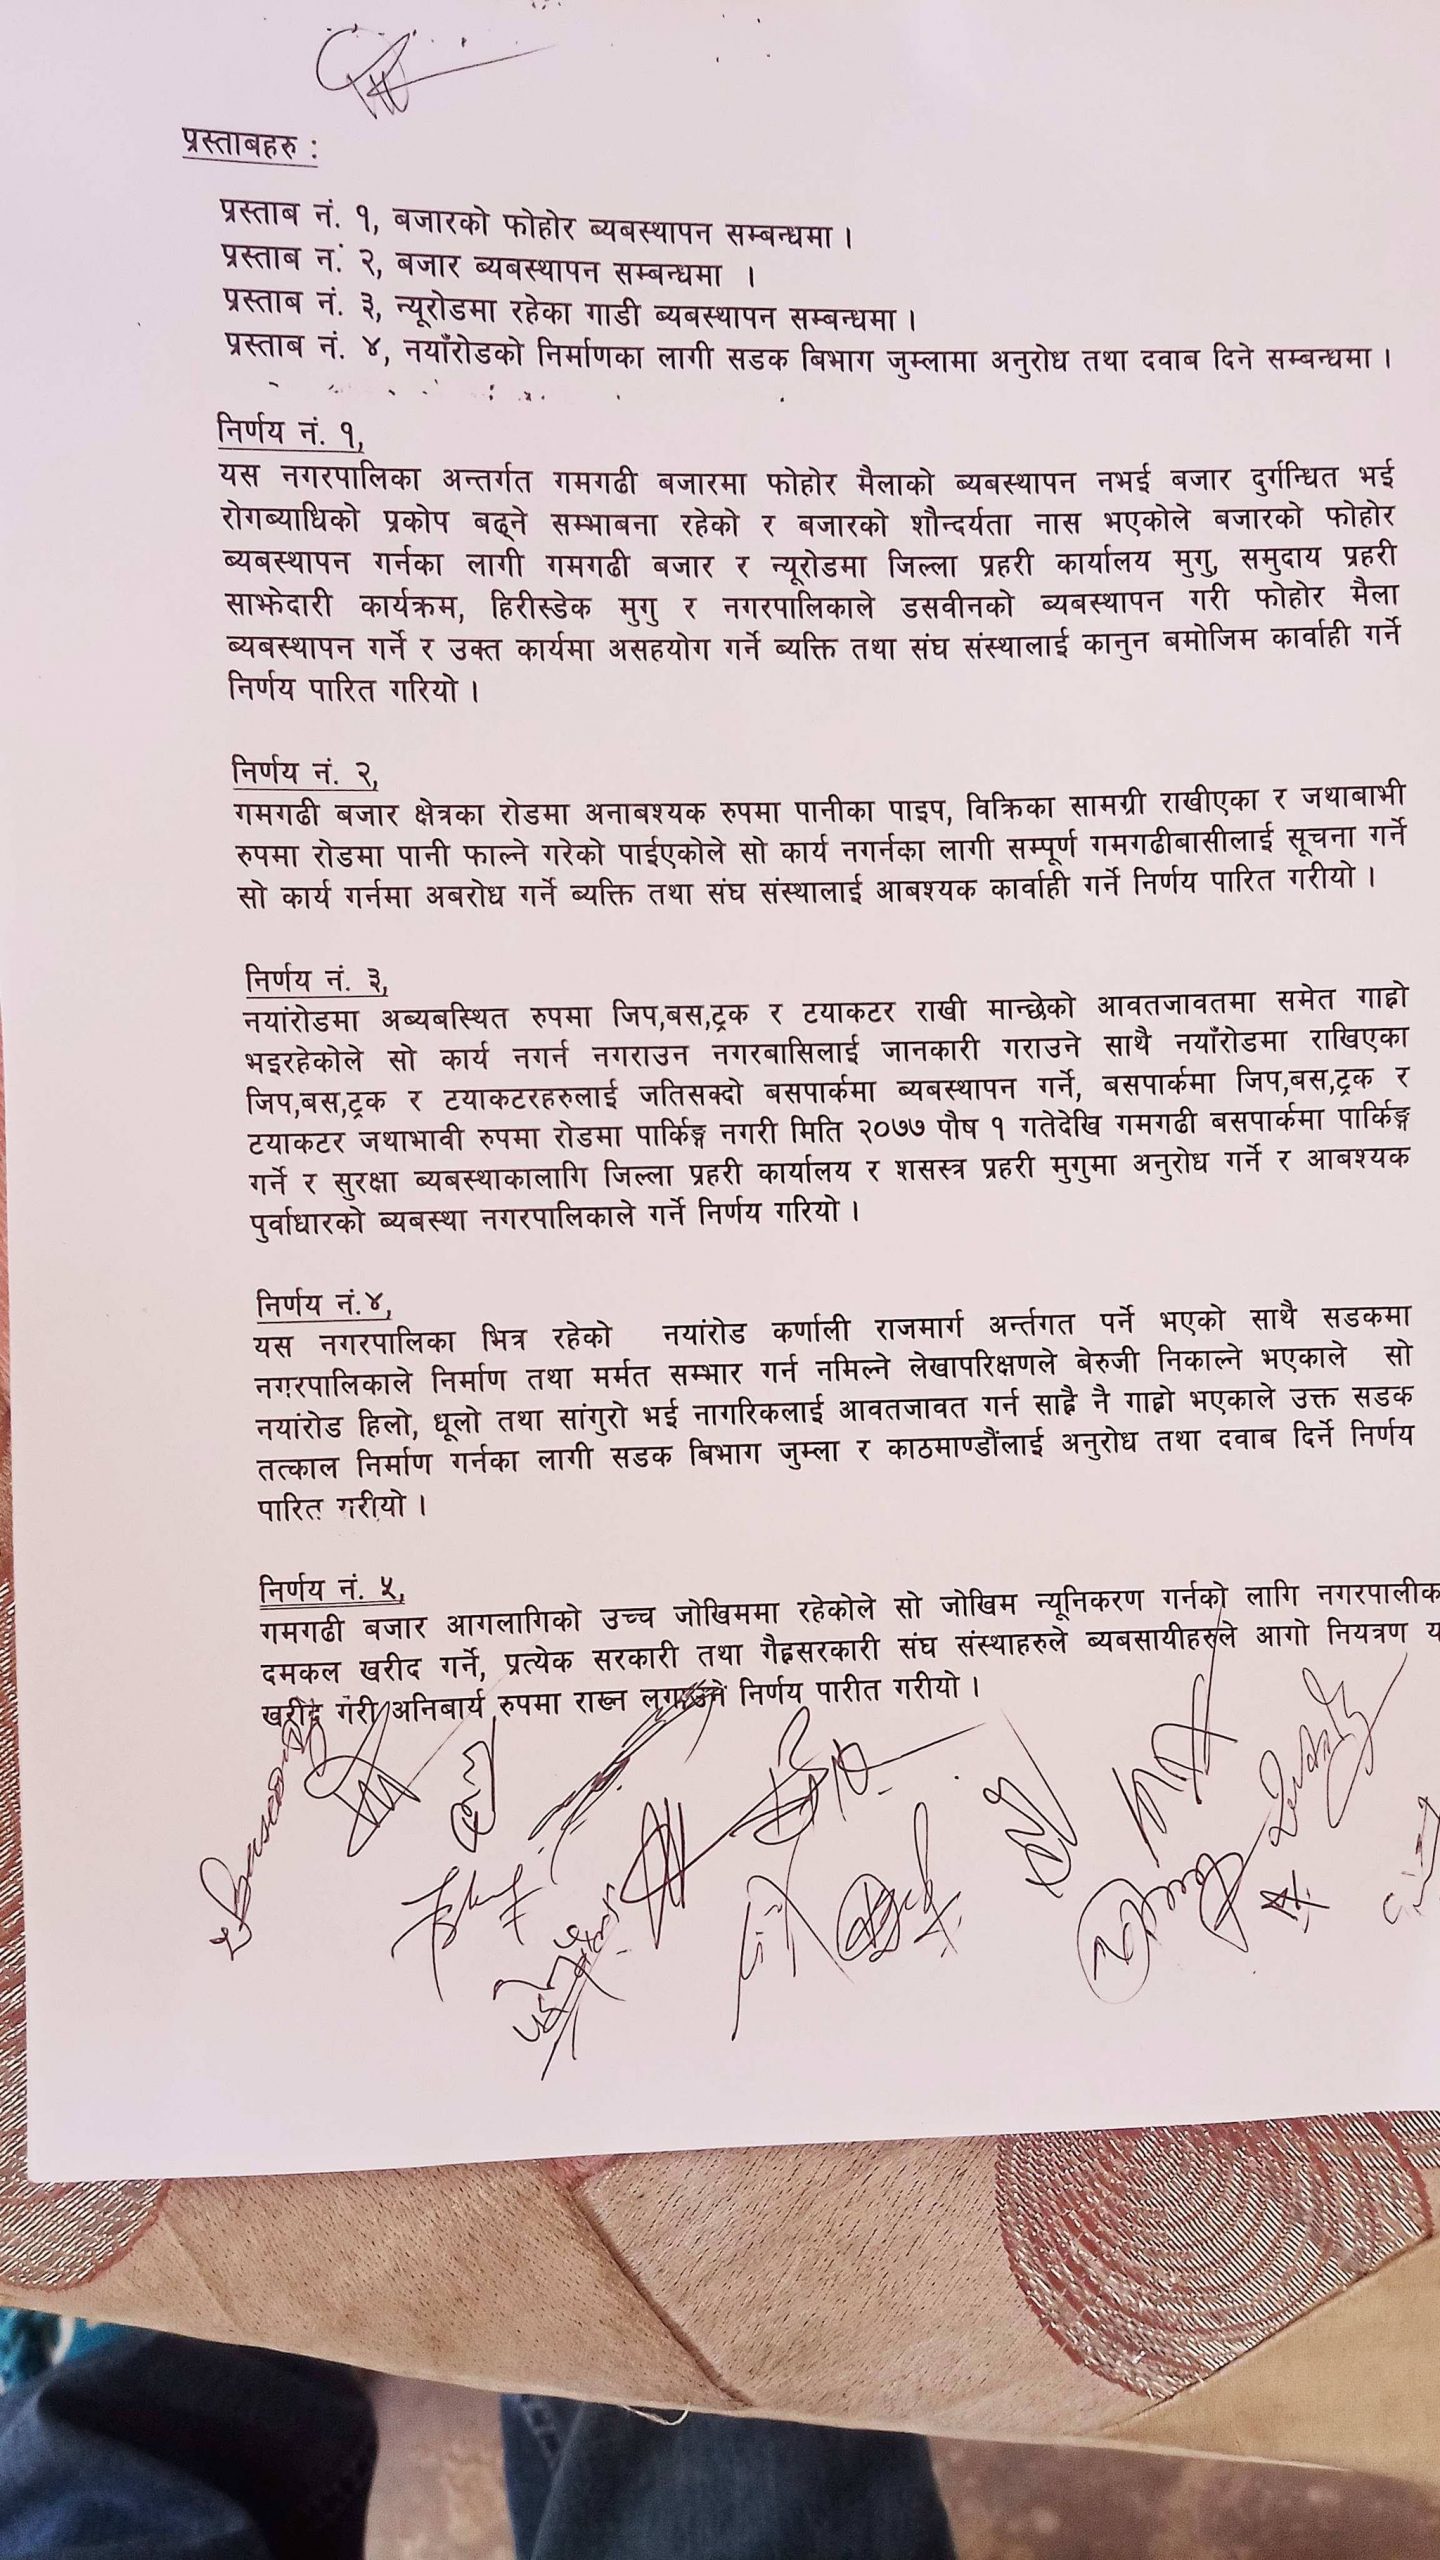 प्रस्ताबहरु :
प्रस्ताब नं. १, बजारको फोहोर ब्यबस्थापन सम्बन्धमा ।
प्रस्ताब नं. २, बजार ब्यबस्थापन सम्बन्धमा ।
प्रस्ताब नं. ३, न्यूरोडमा रहेका गाडी ब्यबस्थापन सम्बन्धमा ।
प्रस्ताब नं. ४, नयाँरोडको निर्माणका लागी सडक बिभाग जुम्लामा अनुरोध तथा दवाब दिने सम्बन्धमा ।
निर्णय नं. १,
यस नगरपालिका अन्तर्गत गमगढी बजारमा फोहोर मैलाको ब्यबस्थापन नभई बजार दुर्गन्धित भई
रोगब्याधिको प्रकोप बढ्ने सम्भाबना रहेको र बजारको शौन्दर्यता नास भएकोले बजारको फोहोर
ब्यबस्थापन गर्नका लागी गमगढी बजार र न्यूरोडमा जिल्ला प्रहरी कार्यालय मुगु, समुदाय प्रहरी
साझेदारी कार्यक्रम, हिरीस्डेक मुगु र नगरपालिकाले डसवीनको ब्यबस्थापन गरी फोहोर मैला
ब्यबस्थापन गर्ने र उक्त कार्यमा असहयोग गर्ने ब्यक्ति तथा संघ संस्थालाई कानुन बमोजिम कार्वाही गर्ने
निर्णय पारित गरियो ।
निर्णय नं. २,
गमगढी बजार क्षेत्रका रोडमा अनाबश्यक रुपमा पानीका पाइप, विक्रिका सामग्री राखीएका र जथाबाभी
रुपमा रोडमा पानी फाल्ने गरेको पाईएकोले सो कार्य नगर्नका लागी सम्पूर्ण गमगढीबासीलाई सूचना गर्ने
सो कार्य गर्नमा अबरोध गर्ने ब्यक्ति तथा संघ संस्थालाई आबश्यक कार्वाही गर्ने निर्णय पारित गरीयो ।
निर्णय नं. ३,
नयांरोडमा अब्यबस्थित रुपमा जिप,बस,ट्रक र टयाकटर राखी मान्छेको आवतजावतमा समेत गाह्रो
भइरहेकोले सो कार्य नगर्न नगराउन नगरबासिलाई जानकारी गराउने साथै नयाँरोडमा राखिएका
जिप,बस,ट्रक र टयाकटरहरुलाई जतिसक्दो बसपार्कमा ब्यबस्थापन गर्ने, बसपार्कमा जिप,बस,ट्रक र
टयाकटर जथाभावी रुपमा रोडमा पार्किङ्ग नगरी मिति २०७७ पौष १ गतेदेखि गमगढी बसपार्कमा पार्किङ्ग
गर्ने र सुरक्षा ब्यबस्थाकालागि जिल्ला प्रहरी कार्यालय र शसस्त्र प्रहरी मुगुमा अनुरोध गर्ने र आबश्यक
पुर्वाधारको ब्यबस्था नगरपालिकाले गर्ने निर्णय गरियो ।
निर्णय नं.४,
यस नगरपालिका भित्र रहेको नयांरोड कर्णाली राजमार्ग अर्न्तगत पर्ने भएको साथै सडकमा
नगरपालिकाले निर्माण तथा मर्मत सम्भार गर्न नमिल्ने लेखापरिक्षणले बेरुजी निकाल्ने भएकाले सो
नयांरोड हिलो, धूलो तथा सांगुरो भई नागरिकलाई आवतजावत गर्न साह्रै नै गाह्रो भएकाले उक्त सडक
तत्काल निर्माण गर्नका लागी सडक बिभाग जुम्ला र काठमाण्डौंलाई अनुरोध तथा दवाब दिर्ने निर्णय
पारित गरीयो ।
निर्णय नं. ५,
गमगढी बजार आगलागिको उच्च जोखिममा रहेकोले सो जोखिम न्यूनिकरण गर्नको लागि नगरपालीक
दमकल खरीद गर्ने, प्रत्येक सरकारी तथा गैह्रसरकारी संघ संस्थाहरुले ब्यबसायीहरुले आगो नियत्रण य
खरीद गरी अनिबार्य रुपमा राख्न लगाउने निर्णय पारीत गरीयो ।